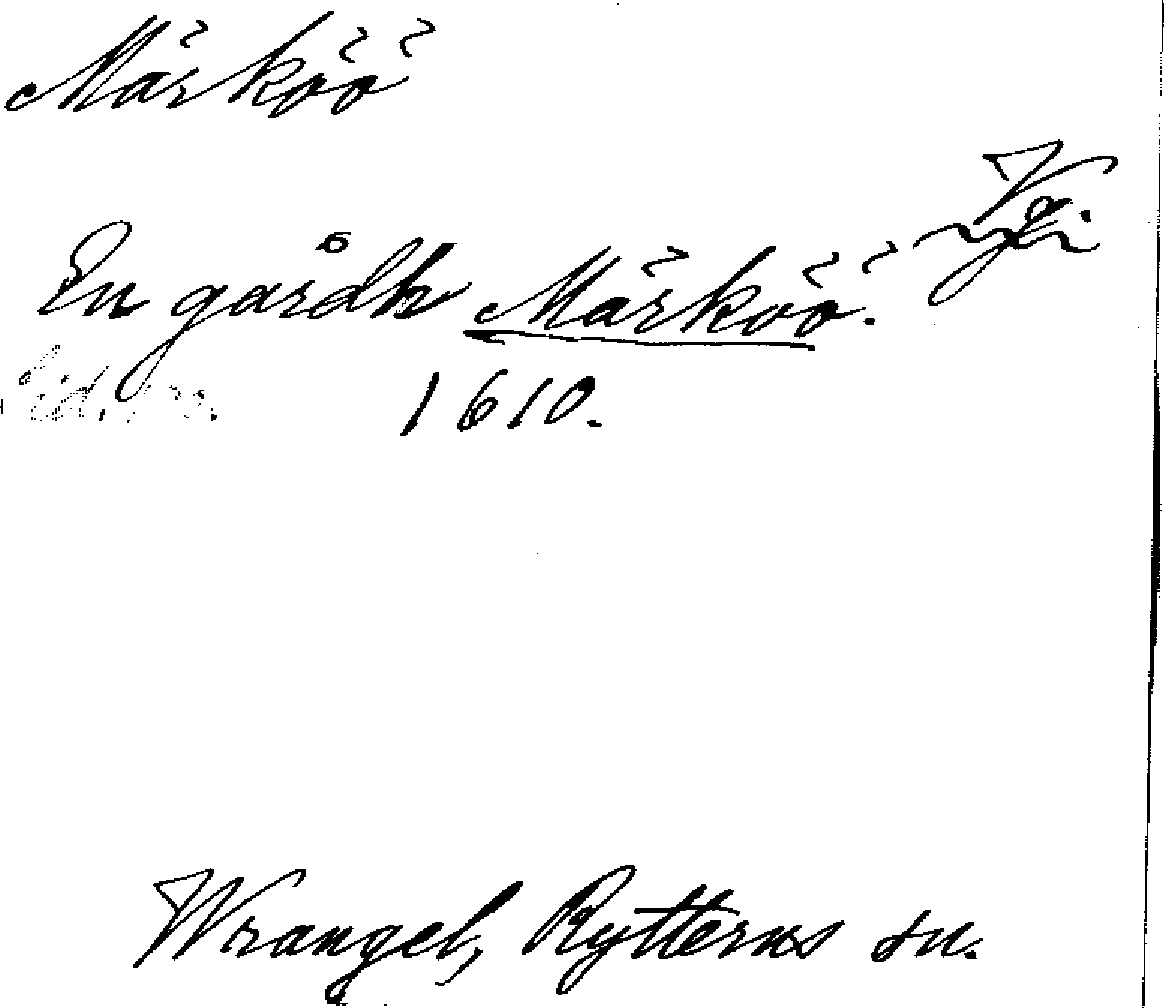 Märköö
Vgi
En gårdh Märköö.
1610.
Wrangel, Rytterns sn.